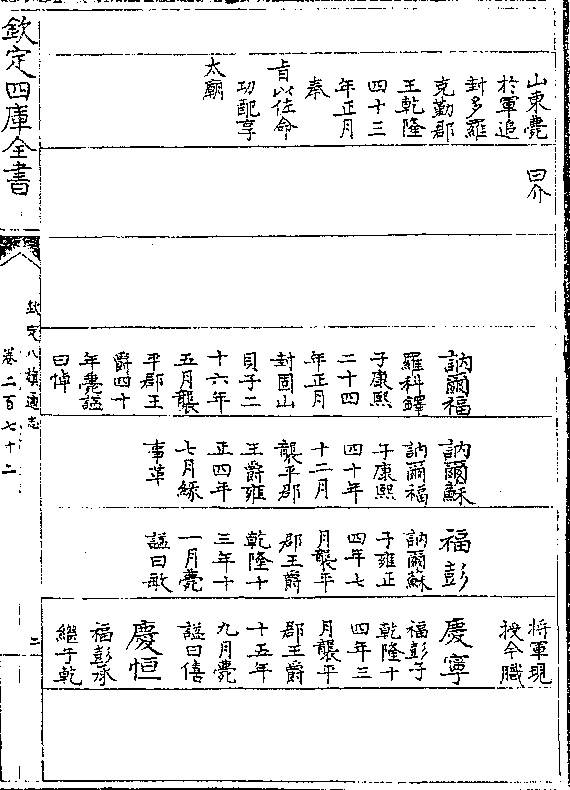 山東薨
於軍追
封多羅
克勤郡
王乾隆
四十三
年正月
奉
旨以佐命
功配享
太廟
曰介
訥爾福
羅科鐸
子康熙
二十四
年正月
封固山
貝子二
十六年
五月襲
平郡王
爵四十
年薨諡
曰悼
訥爾蘇
訥爾福
子康熙
四十年
十二月
襲平郡
王爵雍
正四年
七月緣
事革
福彭
訥爾蘇
子雍正
四年七
月襲平
郡王爵
乾隆十
三年十
一月薨
諡曰敏
將軍現
授今職
慶寧
福彭子
乾隆十
四年三
月襲平
郡王爵
十五年
九月薨
諡曰僖
慶恒
福彭承
繼子乾
欽定四庫全書
欽定八旗通志
卷二百七十二
二